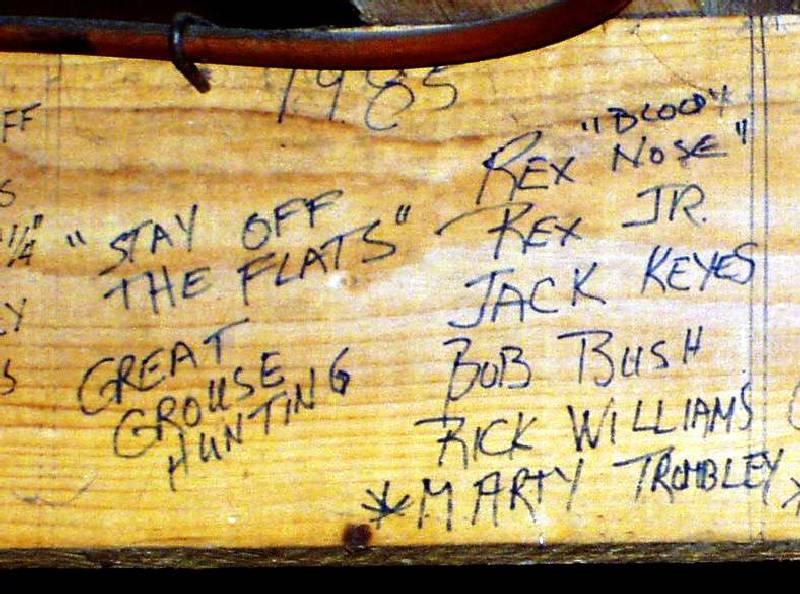 1985
FF
S
1/4"
Y
S
"STAY OFF
THE FLATS"
GREAT
GROUSE
HUNTING
"BLOODY
REX NOSE"
REX JR.
JACK KEYES
BOB BUSH
RICK WILLIAMS
*MARTY TROMBLEY